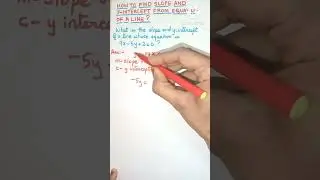 HOW TO FIND SLOPE AND
Y-INTERCEPT FROM EQUA
OF A LINE?
What is the slope and y intercept
of line whose equation is
9x-5y+2=0?
Ans:-
m-slope
c- y intercept
-5y=